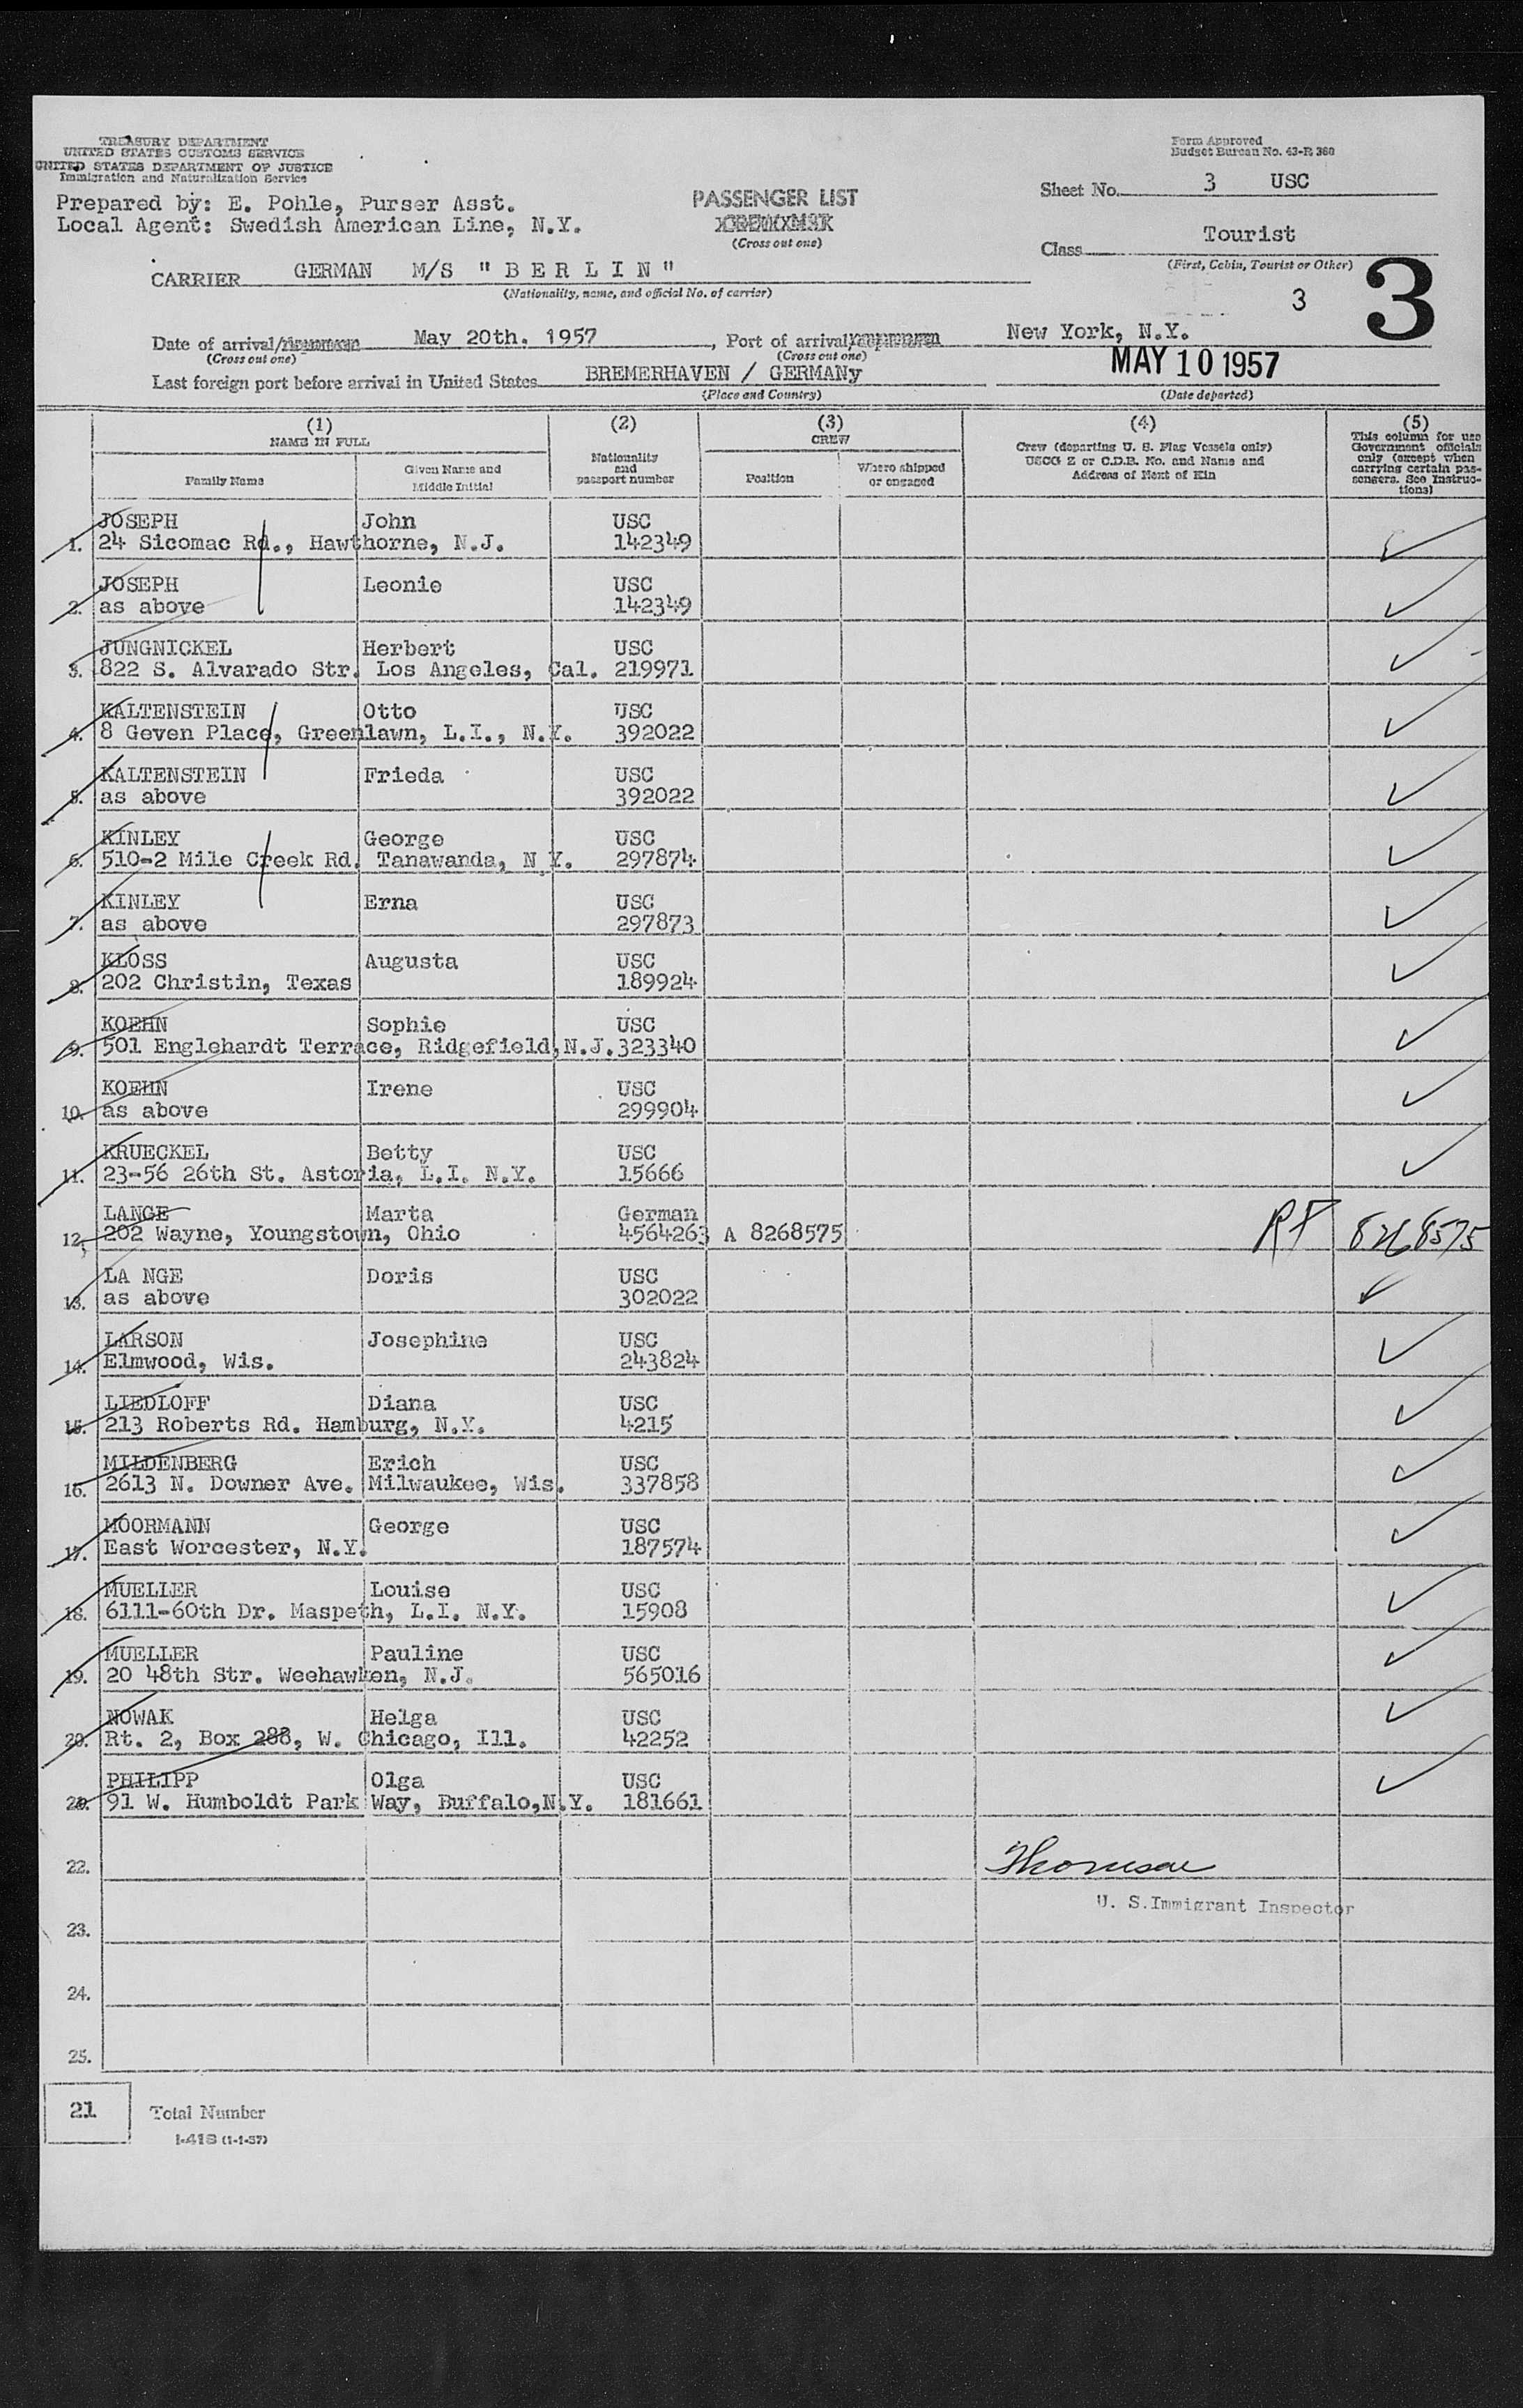 TREASURY DEPARTMENT
UNITED STATES CUSTOMS SERVICE
UNITED STATES DEPARTMENT OF JUSTICE
Immigration and Naturalization Service
Form Approved
Budget Bureau No. 43-R 368
Prepared by: E. Pohle, Purser Asst.
Local Agent: Swedish American Line, N.Y.
PASSENGER LIST
(Cross out one)
Sheet No. 3 USC
Class Tourist
(First, Cabin, Tourist or Other)
3
3
CARRIER GERMAN M/S "BERLIN"
(Nationality, name, and official No. of carrier)
Date of arrival/ May 20th. 1957, Port of arrival New York, N.Y.
(Cross out one) (Cross out one)
Last foreign port before arrival in United States BREMERHAVEN / GERMANy MAY 10 1957
(Place and Country) (Date departed)
(1) (2) (3) (4) (5)
NAME IN FULL
Family Name
Given Name and Middle Initial
Nationality and passport number
CREW
Position
Where shipped or engaged
Crew (departing U. S. Flag Vessels only) USCG Z or C.D.B. No. and Name and Address of Next of Kin
This column for use Government officials only (except when carrying certain passengers. See Instructions)
JOSEPH John USC
1. 24 Sicomac Rd., Hawthorne, N.J. 142349
JOSEPH Leonie USC
2. as above 142349
JUNGNICKEL Herbert USC
3. 822 S. Alvarado Str. Los Angeles, Cal. 219971
KALTENSTEIN Otto USC
4. 8 Geven Place, Greenlawn, L.I., N.Y. 392022
KALTENSTEIN Frieda USC
5. as above 392022
KINLEY George USC
6. 510-2 Mile Creek Rd. Tanawanda, N.Y. 297874
KINLEY Erna USC
7. as above 297873
KLOSS Augusta USC
8. 202 Christin, Texas 189924
KOEHN Sophie USC
9. 501 Englehardt Terrace, Ridgefield,N.J. 323340
KOEHN Irene USC
10. as above 299904
KRUECKEL Betty USC
11. 23-56 26th St. Astoria, L.I. N.Y. 15666
LANGE Marta German
12. 202 Wayne, Youngstown, Ohio 4564263 A 8268575 RF 8268575
LA NGE Doris USC
13. as above 302022
LARSON Josephine USC
14. Elmwood, Wis. 243824
LIEDLOFF Diana USC
15. 213 Roberts Rd. Hamburg, N.Y. 4215
MILDENBERG Erich USC
16. 2613 N. Downer Ave. Milwaukee, Wis. 337858
MOORMANN George USC
17. East Worcester, N.Y. 187574
MUELLER Louise USC
18. 6111-60th Dr. Maspeth, L.I. N.Y. 15908
MUELLER Pauline USC
19. 20 48th Str. Weehawken, N.J. 565016
NOWAK Helga USC
20. Rt. 2, Box 288, W. Chicago, Ill. 42252
PHILIPP Olga USC
91 W. Humboldt Park Way, Buffalo,N.Y. 181661
22.
U. S. Immigrant Inspector
23.
24.
25.
21 Total Number
I-418 (1-1-57)